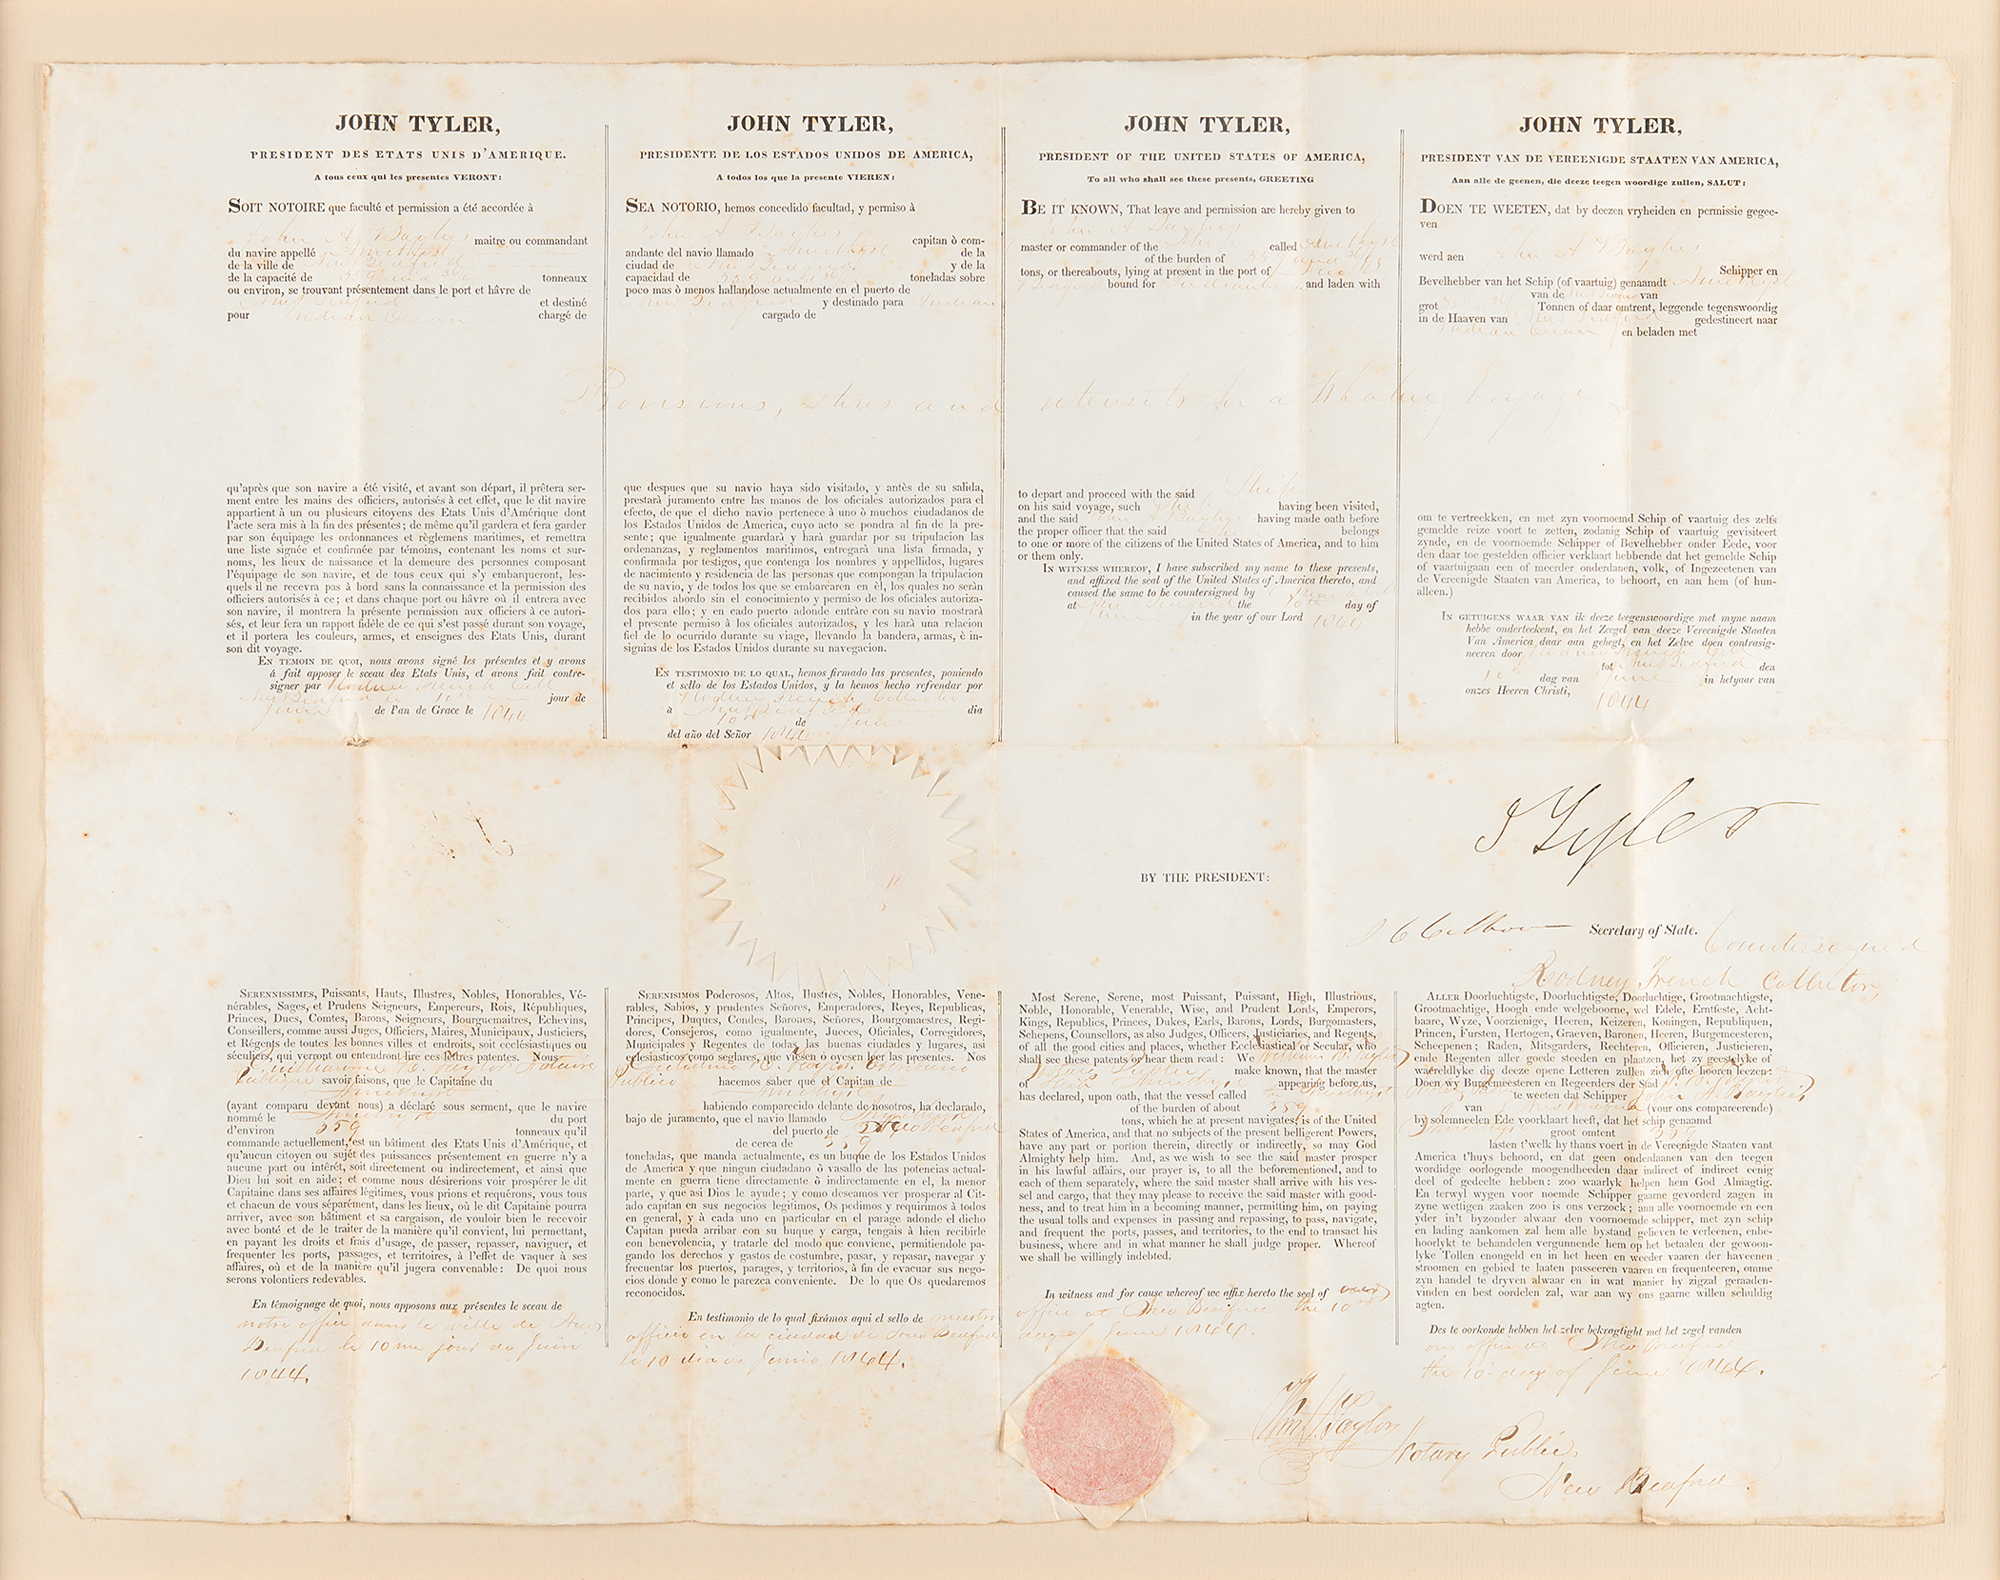 JOHN TYLER,
PRESIDENT DES ETATS UNIS D'AMERIQUE.
A tous ceux qui les presentes VERONT:
SOIT NOTOIRE que faculté et permission a été accordée à
John A. Baylies maitre ou commandant
du navire appellé Amethyst
de la ville de New Bedford
de la capacité de 359 tonneaux
ou environ, se trouvant présentement dans le port et hâvre de
New Bedford et destiné
pour Indian Ocean chargé de
JOHN TYLER,
PRESIDENTE DE LOS ESTADOS UNIDOS DE AMERICA,
A todos los que la presente VIEREN:
SEA NOTORIO, hemos concedido facultad, y permiso à
John A. Baylies capitan ò com-
andante del navio llamado Amethyst de la
ciudad de New Bedford y de la
capacidad de 359 toneladas sobre
poco mas ò menos hallandose actualmente en el puerto de
New Bedford y destinado para Indian
cargado de
JOHN TYLER,
PRESIDENT OF THE UNITED STATES OF AMERICA,
To all who shall see these presents, GREETING
BE IT KNOWN, That leave and permission are hereby given to
John A Baylies
master or commander of the Ship called Amethyst
of the burden of 359
tons, or thereabouts, lying at present in the port of New
Bedford bound for Indian Ocean and laden with
JOHN TYLER,
PRESIDENT VAN DE VEREENIGDE STAATEN VAN AMERICA,
Aan alle de geenen, die deeze teegen woordige zullen, SALUT:
DOEN TE WEETEN, dat by deezen vryheiden en permissie gegee-
ven
werd aen John A Baylies
Schipper en
Bevelhebber van het Schip (of vaartuig) genaamdt Amethyst
van de New Bedford van
grot 359 Tonnen of daar omtrent, leggende tegenswoordig
in de Haaven van New Bedford gedestineert naar
Indian Ocean en beladen met
Provisions, stores and utensils for a Whaling Voyage
qu'après que son navire a été visité, et avant son départ, il prêtera ser-
ment entre les mains des officiers, autorisés à cet effet, que le dit navire
appartient à un ou plusieurs citoyens des Etats Unis d'Amérique dont
l'acte sera mis à la fin des présentes; de même qu'il gardera et fera garder
par son équipage les ordonnances et règlemens maritimes, et remettra
une liste signée et confirmée par témoins, contenant les noms et sur-
noms, les lieux de naissance et la demeure des personnes composant
l'équipage de son navire, et de tous ceux qui s'y embarqueront, les-
quels il ne recevra pas à bord sans la connaissance et la permission des
officiers autorisés à ce; et dans chaque port ou hâvre où il entrera avec
son navire, il montrera la présente permission aux officiers à ce autori-
sés, et leur fera un rapport fidèle de ce qui s'est passé durant son voyage,
et il portera les couleurs, armes, et enseignes des Etats Unis, durant
son dit voyage.
EN TEMOIN DE QUOI, nous avons signé les présentes et y avons
á fait apposer le sceau des Etats Unis, et avons fait contre-
signer par Rodney French Coll
New Bedford le 10 jour de
June de l'an de Grace le 1844
que despues que su navio haya sido visitado, y antès de su salida,
prestarà juramento entre las manos de los oficiales autorizados para el
efecto, de que el dicho navio pertenece à uno ò muchos ciudadanos de
los Estados Unidos de America, cuyo acto se pondra al fin de la pre-
sente; que igualmente guardarà y harà guardar por su tripulacion las
ordenanzas, y reglamentos maritimos, entregarà una lista firmada, y
confirmada por testigos, que contenga los nombres y appellidos, lugares
de nacimiento y residencia de las personas que compongan la tripulacion
de su navio, y de todos los que se embarcaren en èl, los quales no seràn
recibidos abordo sin el conocimiento y permiso de los oficiales autoriza-
dos para ello; y en cado puerto adonde entràre con su navio mostrarà
el presente permiso à los oficiales autorizados, y les harà una relacion
fiel de lo ocurrido durante su viage, llevando la bandera, armas, è in-
signias de los Estados Unidos durante su navegacion.
EN TESTIMONIO DE LO QUAL, hemos firmado las presentes, poniendo
et sello de los Estados Unidos, y la hemos hecho refrendar por
Rodney French Collector
à New Bedford dia
10th de June
del año del Señor 1844
to depart and proceed with the said Ship
on his said voyage, such Ship having been visited,
and the said John A Baylies having made oath before
the proper officer that the said Ship belongs
to one or more of the citizens of the United States of America, and to him
or them only.
IN WITNESS WHEREOF, I have subscribed my name to these presents,
and affixed the seal of the United States of America thereto, and
caused the same to be countersigned by R French Coll
at New Bedford the 10th day of
June in the year of our Lord 1844
om te vertreekken, en met zyn voornoemd Schip of vaartuig des zelfs
gemelde reize voort te zetten, zodanig Schip of vaartuig gevisiteert
zynde, en de voornoemde Schipper of Bevelhebber onder Eede, voor
den daar toe gestelden officier verklaart hebbende dat het gemelde Schip
of vaartuigaan een of meerder onderdanen, volk, of Ingezeetenen van
de Vereenigde Staaten van America, to behoort, en aan hem (of hun-
alleen.)
IN GETUIGENS WAAR VAN ik deeze teegenswoordige met myne naam
hebbe onderteekent, en het Zeegel van deeze Vereenigde Staaten
Van America daar aan gehegt, en het Zelve doen contrasig-
neeren door Rodney French Coll
tot New Bedford den
10th dag van June in hetyaar van
onzes Heeren Christi, 1844
J Tyler
BY THE PRESIDENT:
J C Calhoun Secretary of State.
Countersigned
Rodney French Collector,
SERENNISSIMES, Puissants, Hauts, Illustres, Nobles, Honorables, Vé-
nérables, Sages, et Prudens Seigneurs, Empereurs, Rois, Républiques,
Princes, Ducs, Comtes, Barons, Seigneurs, Bourguemaitres, Echevins,
Conseillers, comme aussi Juges, Officiers, Maires, Municipaux, Justiciers,
et Régents de toutes les bonnes villes et endroits, soit ecclésiastiques ou
séculiers, qui verront ou entendront lire ces lettres patentes. Nous
William H. Taylor Notaire
Publique savoir faisons, que le Capitaine du
Amethyst
(ayant comparu devant nous) a déclaré sous serment, que le navire
nommé le Amethyst du port
d'environ 359 tonneaux qu'il
commande actuellement, est un bâtiment des Etats Unis d'Amérique, et
qu'aucun citoyen ou sujet des puissances présentement en guerre n'y a
aucune part ou intérêt, soit directement ou indirectement, et ainsi que
Dieu lui soit en aide; et comme nous désirerions voir prospérer le dit
Capitaine dans ses affaires légitimes, vous prions et requérons, vous tous
et chacun de vous séparément, dans les lieux, où le dit Capitaine pourra
arriver, avec son bâtiment et sa cargaison, de vouloir bien le recevoir
avec bonté et de le traiter de la manière qu'il convient, lui permettant,
en payant les droits et frais d'usage, de passer, repasser, naviguer, et
frequenter les ports, passages, et territoires, à l'effet de vaquer à ses
affaires, où et de la manière qu'il jugera convenable: De quoi nous
serons volontiers redevables.
En témoignage de quoi, nous apposons aux présentes le sceau de
notre office dans le ville de New
Bedford le 10 me jour du Juin
1844.
SERENISIMOS Poderosos, Altos, Ilustres, Nobles, Honorables, Vene-
rables, Sabios, y prudentes Señores, Emperadores, Reyes, Republicas,
Principes, Duques, Condes, Barones, Señores, Bourgomaestros, Regi-
dores, Consejeros, como igualmente, Jueces, Oficiales, Corregidores,
Municipales y Regentes de todas las buenas ciudades y lugares, asi
eclesiasticos como seglares, que viesen ò oyesen leer las presentes. Nos
Guilielmo H. Taylor Escribano
Publico hacemos saber que el Capitan de
Amethyst
habiendo comparecido delante de nosotros, ha declarado,
bajo de juramento, que el navio llamado Amethyst
del puerto de New Bedford
de cerca de 359
toneladas, que manda actualmente, es un buque de los Estados Unidos
de America y que ningun ciudadano ò vasallo de las potencias actual-
mente en guerra tiene directamente ò indirectamente en el, la menor
parte, y que asi Dios le ayude; y como deseamos ver prosperar al Cit-
ado capitan en sus negocios legitimos, Os pedimos y requirimos à todos
en general, y à cada uno en particular en el parage adonde el dicho
Capitan pueda arribar con su buque y carga, tengais à hien recibirle
con benevolencia, y tratarle del modo que conviene, permitiendole pa-
gando los derechos y gastos de costumbre, pasar, y repasar, navegar y
frecuentar los puertos, parages, y territorios, à fin de evacuar sus nego-
cios donde y como le parezca conveniente. De lo que Os quedaremos
reconocidos.
En testimonio de lo qual fixámos aqui el sello de nuestro
officio en la ciudad de New Bedford
le 10 dia de Junio 1844.
Most Serene, Serene, most Puissant, Puissant, High, Illustrious,
Noble, Honorable, Venerable, Wise, and Prudent Lords, Emperors,
Kings, Republics, Princes, Dukes, Earls, Barons, Lords, Burgomasters,
Schepens, Counsellors, as also Judges, Officers, Justiciaries, and Regents,
of all the good cities and places, whether Ecclesiastical or Secular, who
shall see these patents or hear them read: We William H. Taylor
Notary Public make known, that the master
of Ship Amethyst appearing before us,
has declared, upon oath, that the vessel called the Amethyst
of the burden of about 359
tons, which he at present navigates, is of the United
States of America, and that no subjects of the present belligerent Powers,
have any part or portion therein, directly or indirectly, so may God
Almighty help him. And, as we wish to see the said master prosper
in his lawful affairs, our prayer is, to all the beforementioned, and to
each of them separately, where the said master shall arrive with his ves-
sel and cargo, that they may please to receive the said master with good-
ness, and to treat him in a becoming manner, permitting him, on paying
the usual tolls and expenses in passing and repassing, to pass, navigate,
and frequent the ports, passes, and territories, to the end to transact his
business, where and in what manner he shall judge proper. Whereof
we shall be willingly indebted.
In witness and for cause whereof we affix hereto the seal of our
office at New Bedford the 10th
day of June 1844.
ALLER Doorluchtigste, Doorluchtigste, Doorluchtige, Grootmachtigste,
Grootmachtige, Hoogh ende welgeboorne, wel Edele, Erntfeste, Acht-
baare, Wyze, Voorzienige, Heeren, Keizeren, Koningen, Republiquen,
Princen, Fursten, Hertogen, Graeven, Baronen, Heeren, Burgemeesteren,
Scheepenen; Raden, Mitsgarders, Rechteren, Officieren, Justicieren,
ende Regenten aller goede steeden en plaatzen, het zy geestelyke of
waéreldlyke die deeze opene Letteren zullen zien ofte hooren leezen:
Doen wy Burgemeesteren en Regeerders der Stad
te weeten dat Schipper John A. Baylies
van New Bedford (vour ons compareerende)
by solemneelen Ede voorklaart heeft, dat het schip genaamd
Amethyst groot omtent 359
lasten t'welk hy thans voert in de Vereenigde Staaten vant
America t'huys behoord, en dat geen onderdaanen van den teegen
wordidge oorlogende moogendheeden daar indirect of indirect eenig
deel of gedeelte hebben: zoo waarlyk helpen hem God Almagtig.
En terwyl wygen voor noemde Schipper gaarne gevorderd zagen in
zyne wettigen zaaken zoo is ons verzoek; ann alle voornoemde en een
yder in't byzonder alwaar den voornoemde schipper, met zyn schip
en lading aankomen zal hem alle bystand gelieven te verleenen, enbe-
hoorlykt te behandelen vergunnende hem op het betaalen der gewoon-
lyke Tollen enongeld en in het heen en weeder vaaren der haveenen
stroomen en gebied te laaten passeeren vaaren en frequenteeren, omme
zyn handel te dryven alwaar en in wat manier by zigzal geraaden-
vinden en best oordelen zal, war aan wy ons gaarne willen schuldig
agten.
Des te oorkonde hebben hel zelve bekragtight met het zegel vanden
our office at New Bedford
the 10 day of June 1844.
Wm H. Taylor
Notary Public
New Bedford.